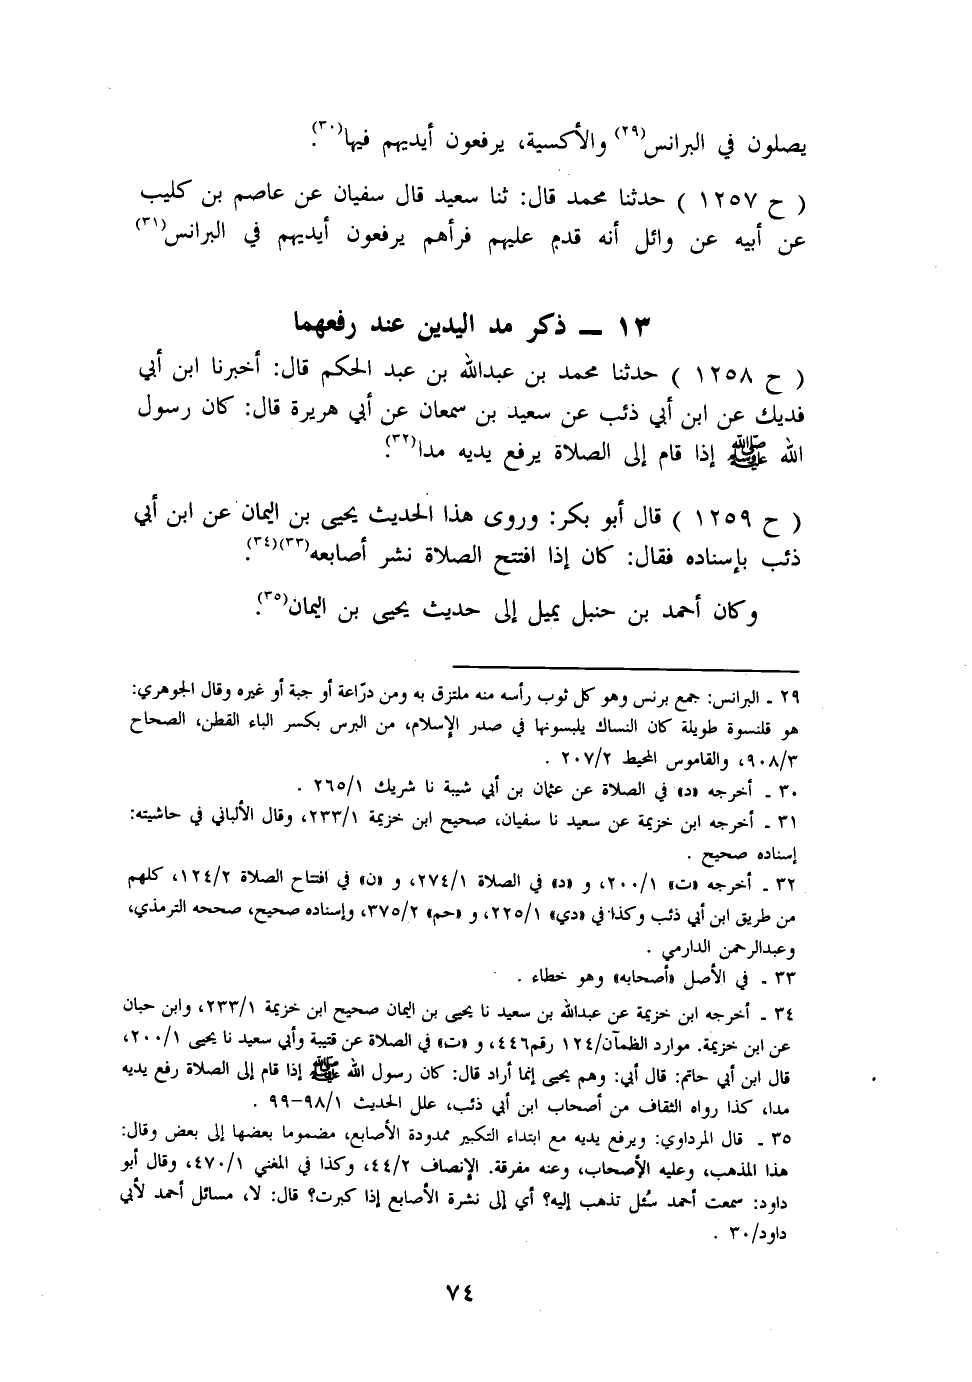 يصلون في البرانس(٢٩) والأكسية، يرفعون أيديهم فيها(٣٠).
( ح ١٢٥٧ ) حدثنا محمد قال: ثنا سعيد قال سفيان عن عاصم بن كليب
عن أبيه عن وائل أنه قدم عليهم فرأهم يرفعون أيديهم في البرانس(٣١)
١٣ ــ ذكر مد اليدين عند رفعهما
( ح ١٢٥٨ ) حدثنا محمد بن عبدالله بن عبد الحكم قال: أخبرنا ابن أبي
فديك عن ابن أبي ذئب عن سعيد بن سمعان عن أبي هريرة قال: كان رسول
الله ﷺ إذا قام إلى الصلاة يرفع يديه مدا(٣٢).
( ح ١٢٥٩ ) قال أبو بكر: وروى هذا الحديث يحيى بن اليمان عن ابن أبي
ذئب بإسناده فقال: كان إذا افتتح الصلاة نشر أصابعه(٣٣)(٣٤).
وكان أحمد بن حنبل يميل إلى حديث يحيى بن اليمان(٣٥).
٢٩ ـ البرانس: جمع برنس وهو كل ثوب رأسه منه ملتزق به ومن درّاعة أو جبة أو غيره وقال الجوهري:
هو قلنسوة طويلة كان النساك يلبسونها في صدر الإسلام، من البرس بكسر الباء القطن، الصحاح
٩٠٨/٣، والقاموس المحيط ٢٠٧/٢ .
٣٠ ـ أخرجه «د» في الصلاة عن عثمان بن أبي شيبة نا شريك ٢٦٥/١ .
٣١ ـ أخرجه ابن خزيمة عن سعيد نا سفيان، صحيح ابن خزيمة ٢٣٣/١، وقال الألباني في حاشيته:
إسناده صحيح .
٣٢ ـ أخرجه «ت» ٢٠٠/١، و «د» في الصلاة ٢٧٤/١، و «ن» في افتتاح الصلاة ١٢٤/٢، كلهم
من طريق ابن أبي ذئب وكذا في «دي» ٢٢٥/١، و «حم» ٣٧٥/٢، وإسناده صحيح، صححه الترمذي،
وعبدالرحمن الدارمي .
٣٣ ـ في الأصل «أصحابه» وهو خطاء .
٣٤ ـ أخرجه ابن خزيمة عن عبدالله بن سعيد نا يحيى بن اليمان صحيح ابن خزيمة ٢٣٣/١، وابن حبان
عن ابن خزيمة. موارد الظمآن/١٢٤ رقم٤٤٦، و «ت» في الصلاة عن قتيبة وأبي سعيد نا يحيى ٢٠٠/١،
قال ابن أبي حاتم: قال أبي: وهم يحيى إنما أراد قال: كان رسول الله ﷺ إذا قام إلى الصلاة رفع يديه
مدا، كذا رواه الثقاف من أصحاب ابن أبي ذئب، علل الحديث ٩٨/١-٩٩ .
٣٥ ـ قال المرداوي: ويرفع يديه مع ابتداء التكبير ممدودة الأصابع، مضموما بعضها إلى بعض وقال:
هذا المذهب، وعليه الأصحاب، وعنه مفرقة. الإنصاف ٤٤/٢، وكذا في المغني ٤٧٠/١، وقال أبو
داود: سمعت أحمد سُئل تذهب إليه؟ أي إلى نشرة الأصابع إذا كبرت؟ قال: لا، مسائل أحمد لأبي
داود/٣٠ .
٧٤